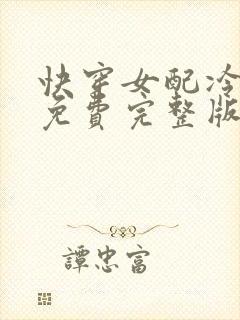 快穿女配冷
免费完整版
譚忠富